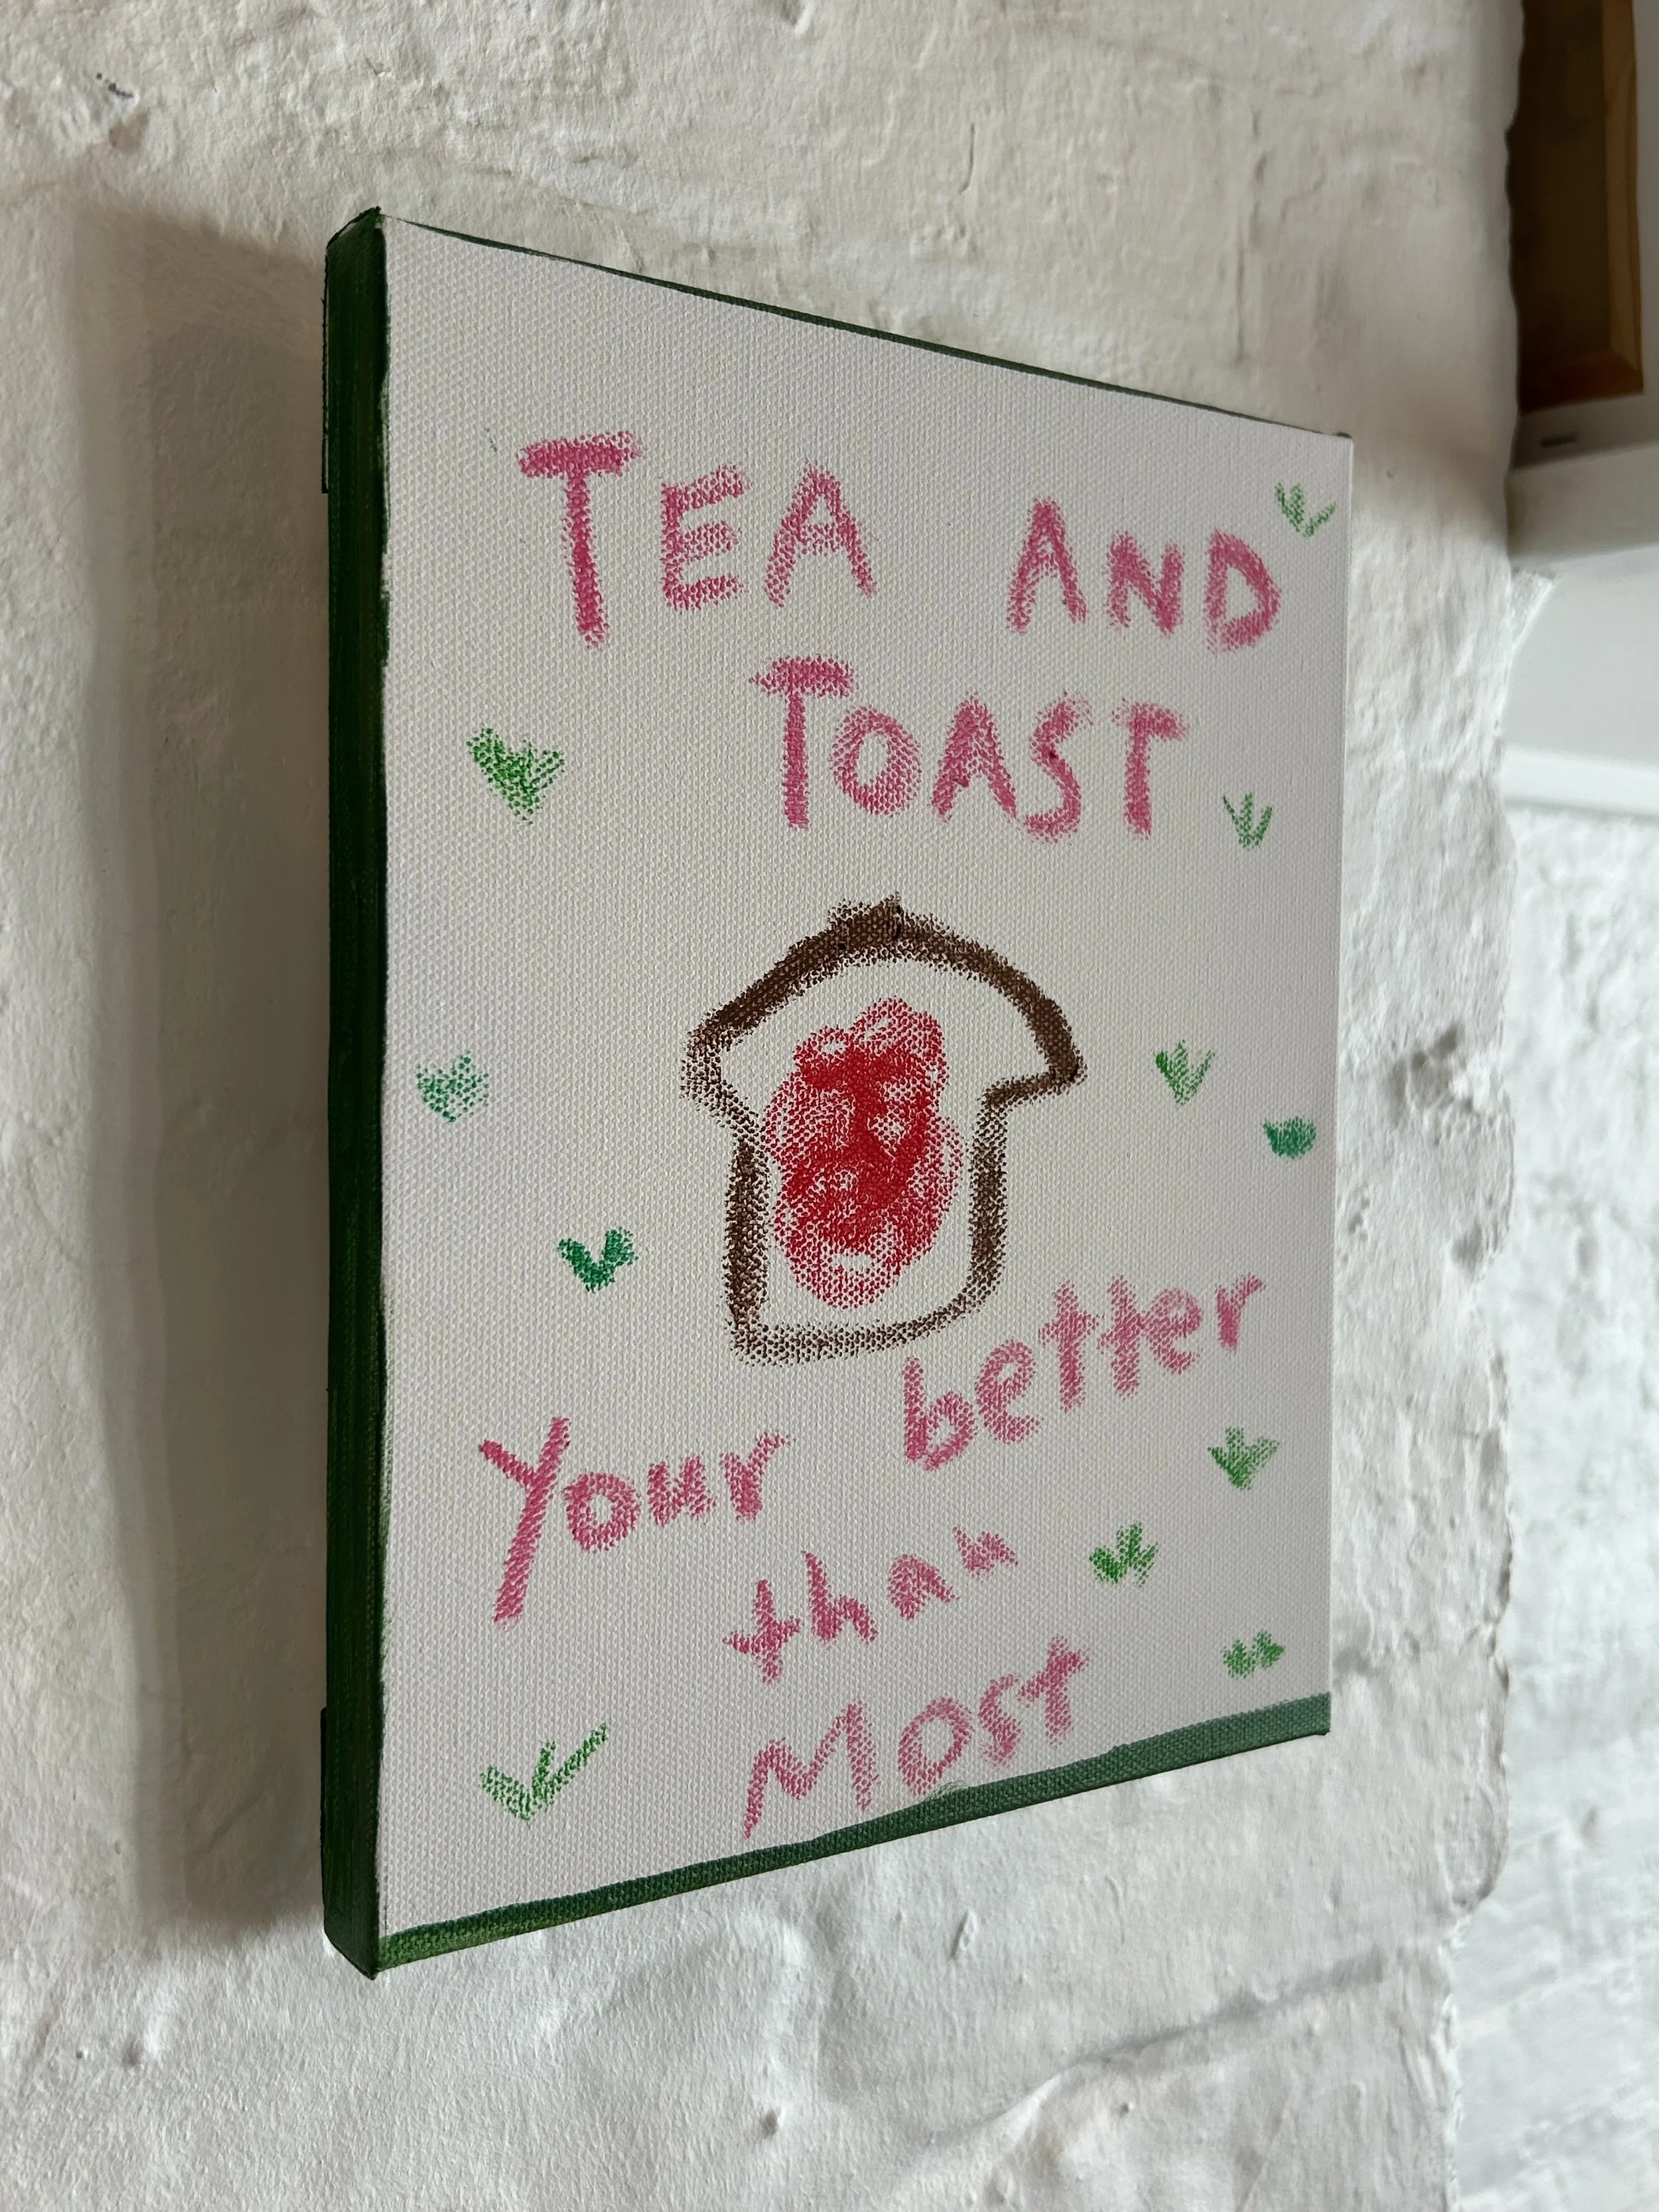 TEA AND
TOAST
Your better
than
Most